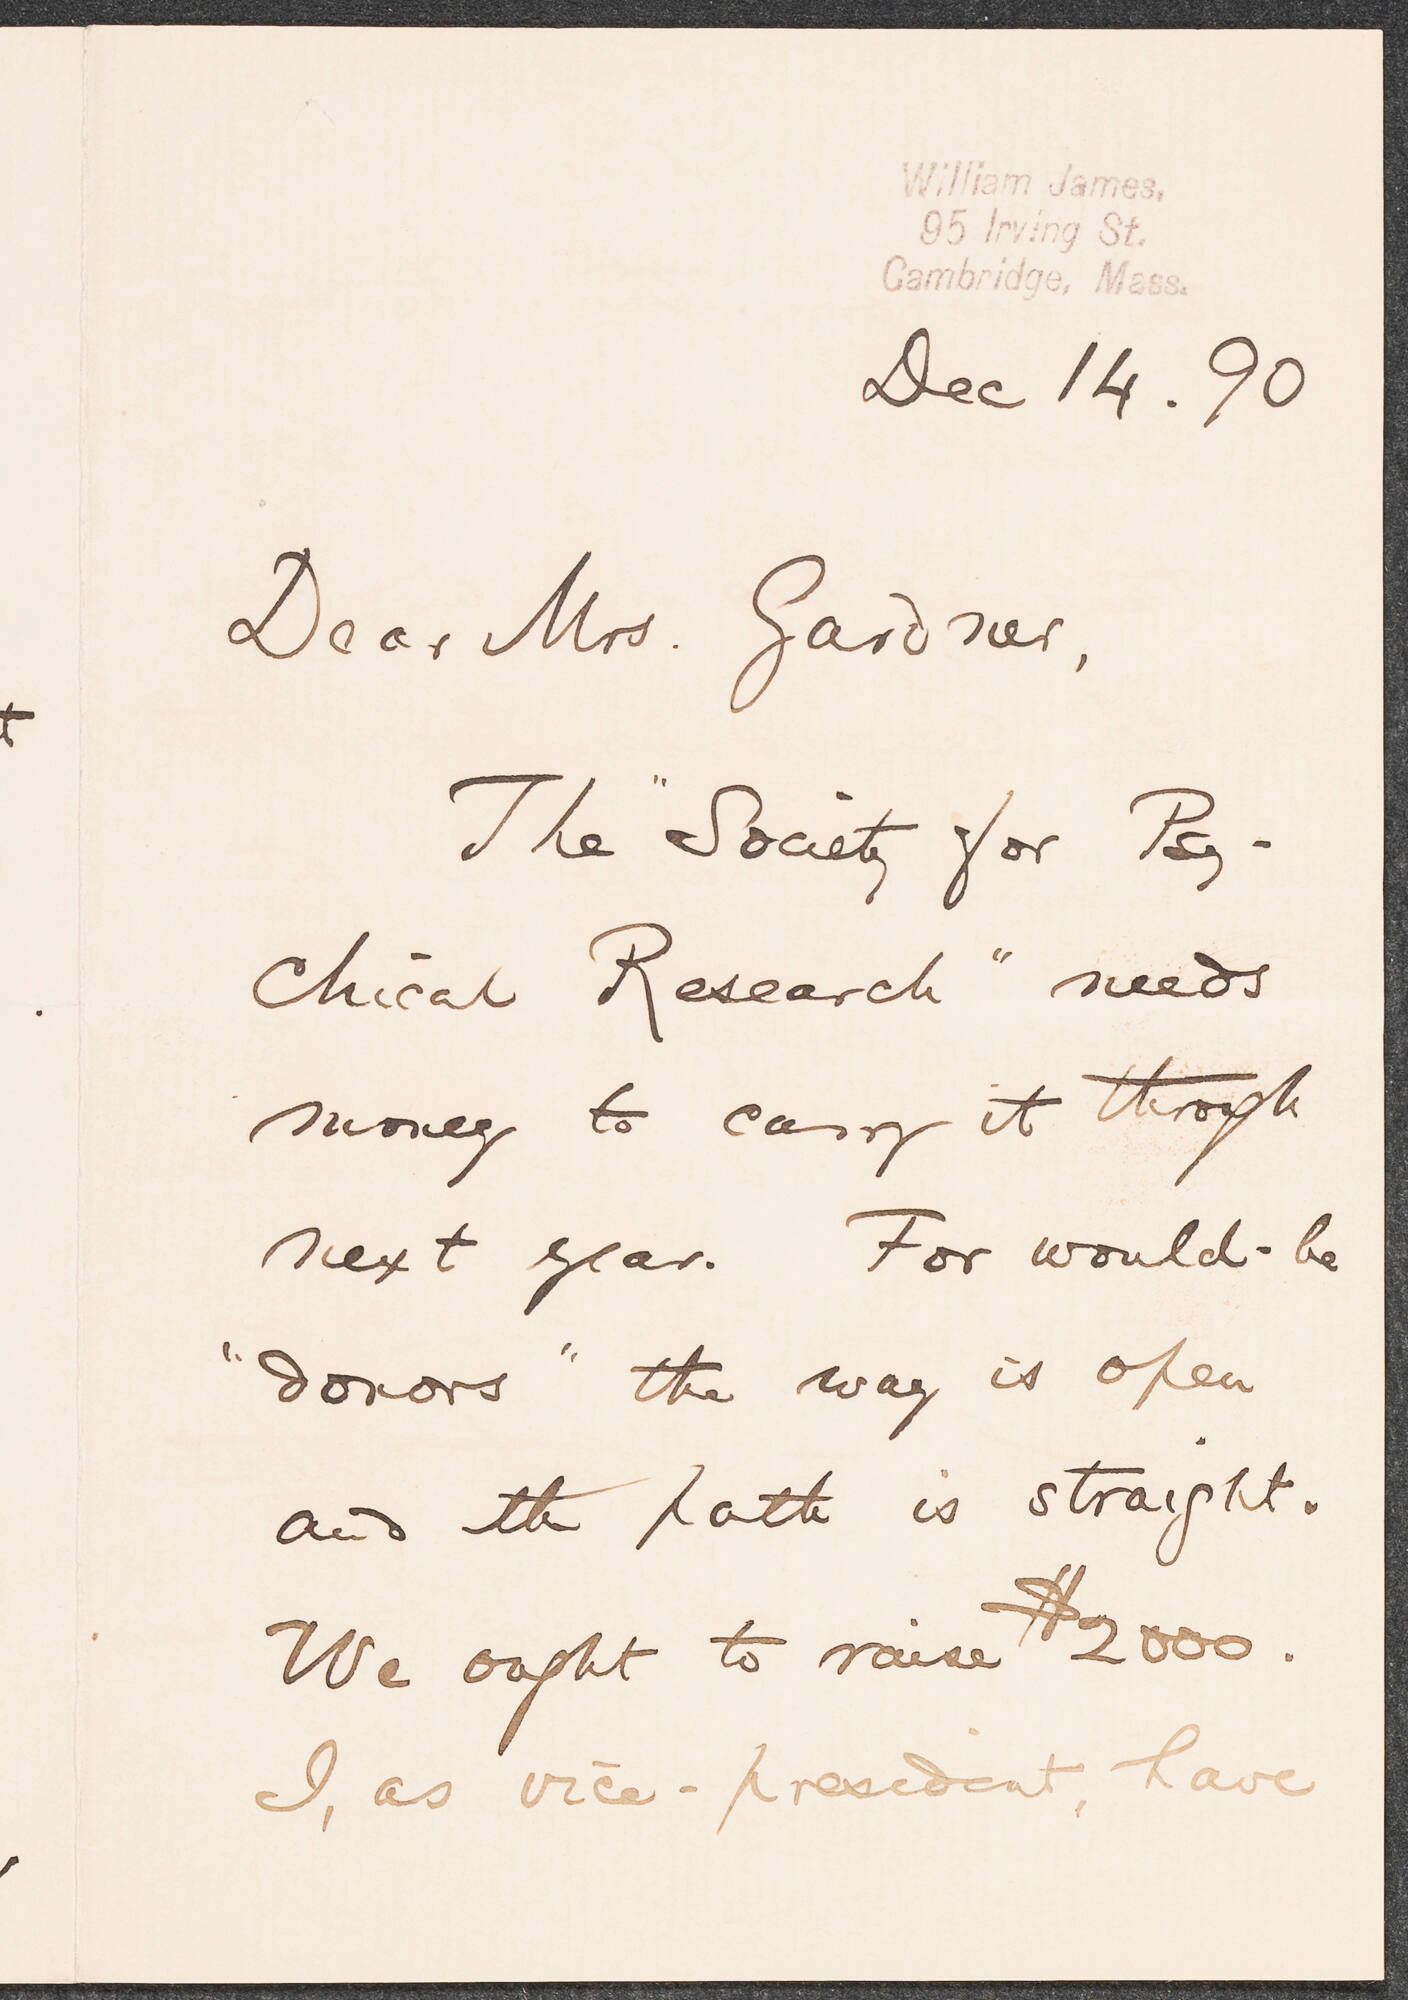 William James,
95 Irving St.
Cambridge, Mass.
Dec 14. 90
Dear Mrs. Gardner,
The "Society for Psy-
chical Research" needs
money to carry it through
next year. For would-be
"donors" the way is open
and the path is straight.
We ought to raise $2000.
I, as vice-president, have